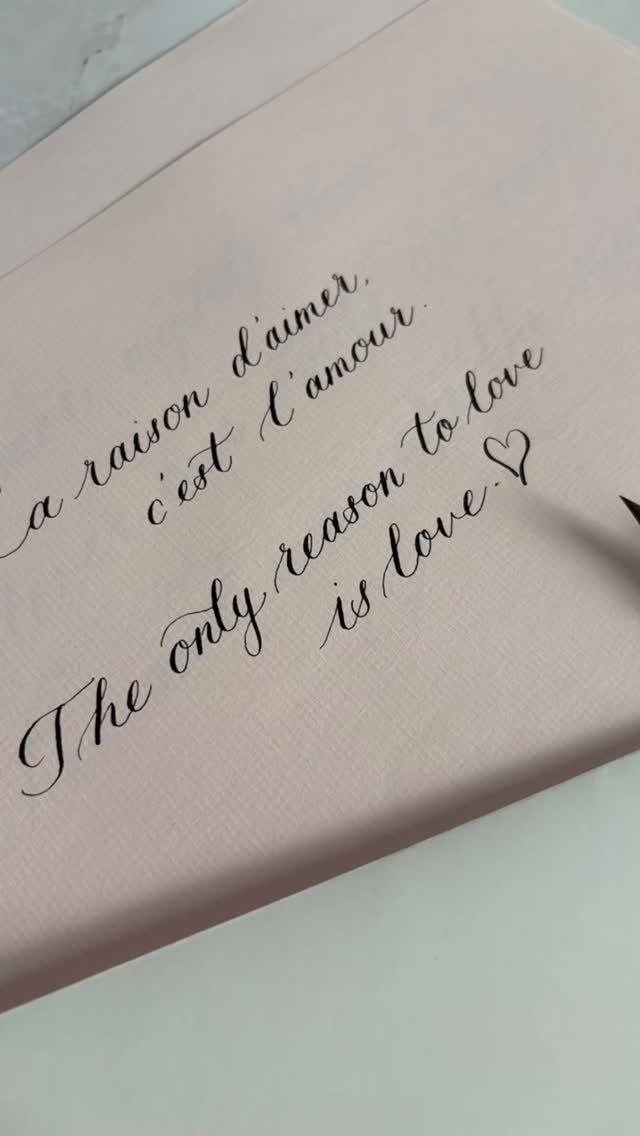 La raison d'aimer,
c'est l'amour.
The only reason to love
is love.